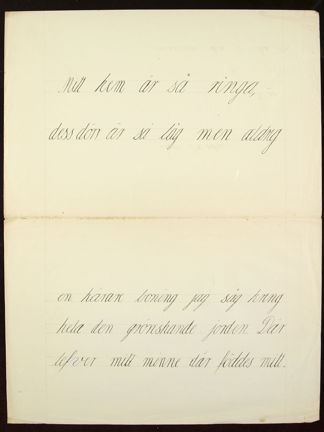 Mitt hem är så ringa,
dess dörr är så låg men aldrig
en kärare boning jag såg kring
hela den grönskande jorden. Där
lefver mitt minne där föddes mitt.